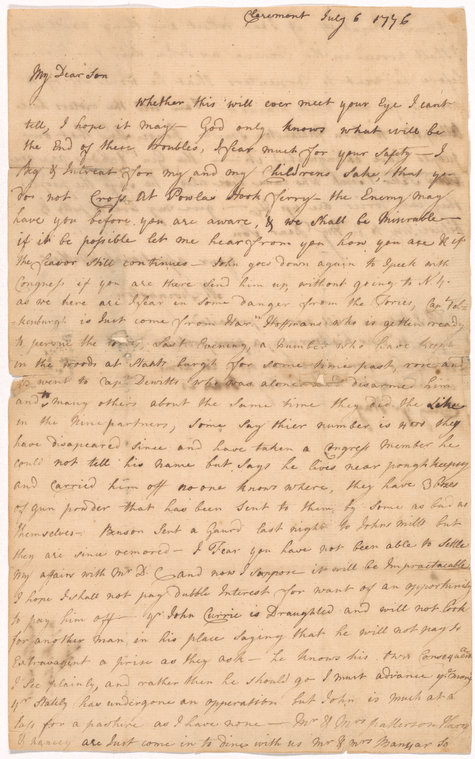 Claremont July 6 1776
My Dear Son
Whether this will ever meet your Eye I cant
tell, I hope it may - God only knows what will be
the End of these troubles, I fear much for your safety - I
Beg & Intreat for my, and my Childrens Sake, that you
Do not Cross At Powlas Hook ferry - the Enemy may
have you before you are aware, & we shall be Miserable -
if it be possible let me hear from you how you are & if
the feavor still continues - John goes down again to speek with
Congress if you are there send him up, without going to N Y.
as we here are I fear in some danger from the Tories, Cap
is Just come from Har Hoffmans who is getting ready
to persue the last Evening, a number who have been
in the woods at Staats burgh for some time past, rose and
went to Cap Dewitts who was alone and disarmed him
and many others about the same time they did the Like
in the Ninepartners, Some Say thier number is they
have disapeared since and have taken a Congress Member he
could not tell his name but says he lives near poughkeepsey
and carried him off no one knows where, they have 3
of Gun powder that has been sent to them, by some as bad as
themselves - Benson sent a Gaurd last night to Johns Mills but
they are since removed - I Fear you have not been able to settle
My affairs with Mr D C and now I supose it will be Impracticable
I hope I shall not pay dubble Interest for want of an opportunity
to pay him off - John Currie is Draughted and will not look
for another man in his place saying that he will not pay so
Extravagent a prise as they ask - he knows his own Consequence
I see plainly and rather then he should go I must advance money
Stately has undergone an opperation but John is much at a
loss for a pasture as I have none - Mr & Mrs Patterson
& are Just come in to dine with us Mr & Mrs to